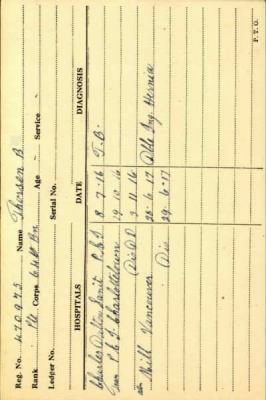 Reg. No. 470975 Name Thorsen B
Rank Pte Corps 64th Bn Age - Service -
Ledger No. Serial No.
HOSPITALS DATE DIAGNOSIS
Charles Dalton Sanit P.E.I 8-7-16 T.B.
P.E.I. Charlottetown 19-10-16
Disd 9-11-16
Mil Vancouver 28-6-17 Dble Ing. Hernia
Dis 29-6-17
P.T.O.